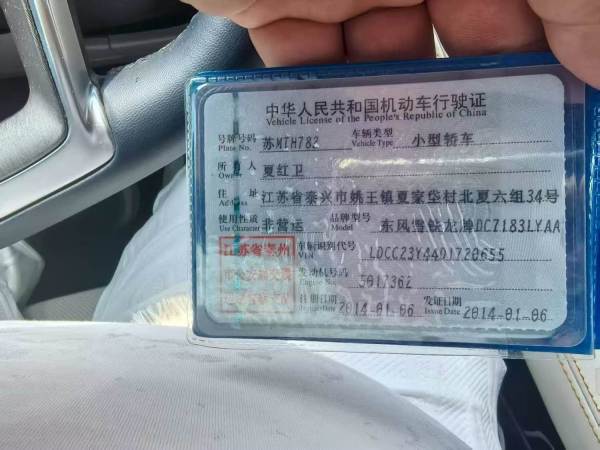 中华人民共和国机动车行驶证
Vehicle License of the People's Republic of China
号牌号码 苏MTH782 车辆类型 小型轿车
Plate No. Vehicle Type
所有人 夏红卫
Owner
住址 江苏省泰兴市姚王镇夏家垈村北夏六组34号
Address
使用性质 非营运 品牌型号 东风雪铁龙牌DC7183LYAA
Use Character Model
江苏省泰州 车辆识别代号 LDCC23Y4401720655
VIN
市公安局交通 发动机号码 5017362
Engine No.
注册日期 2014-01-06 发证日期 2014-01-06
Register Date Issue Date